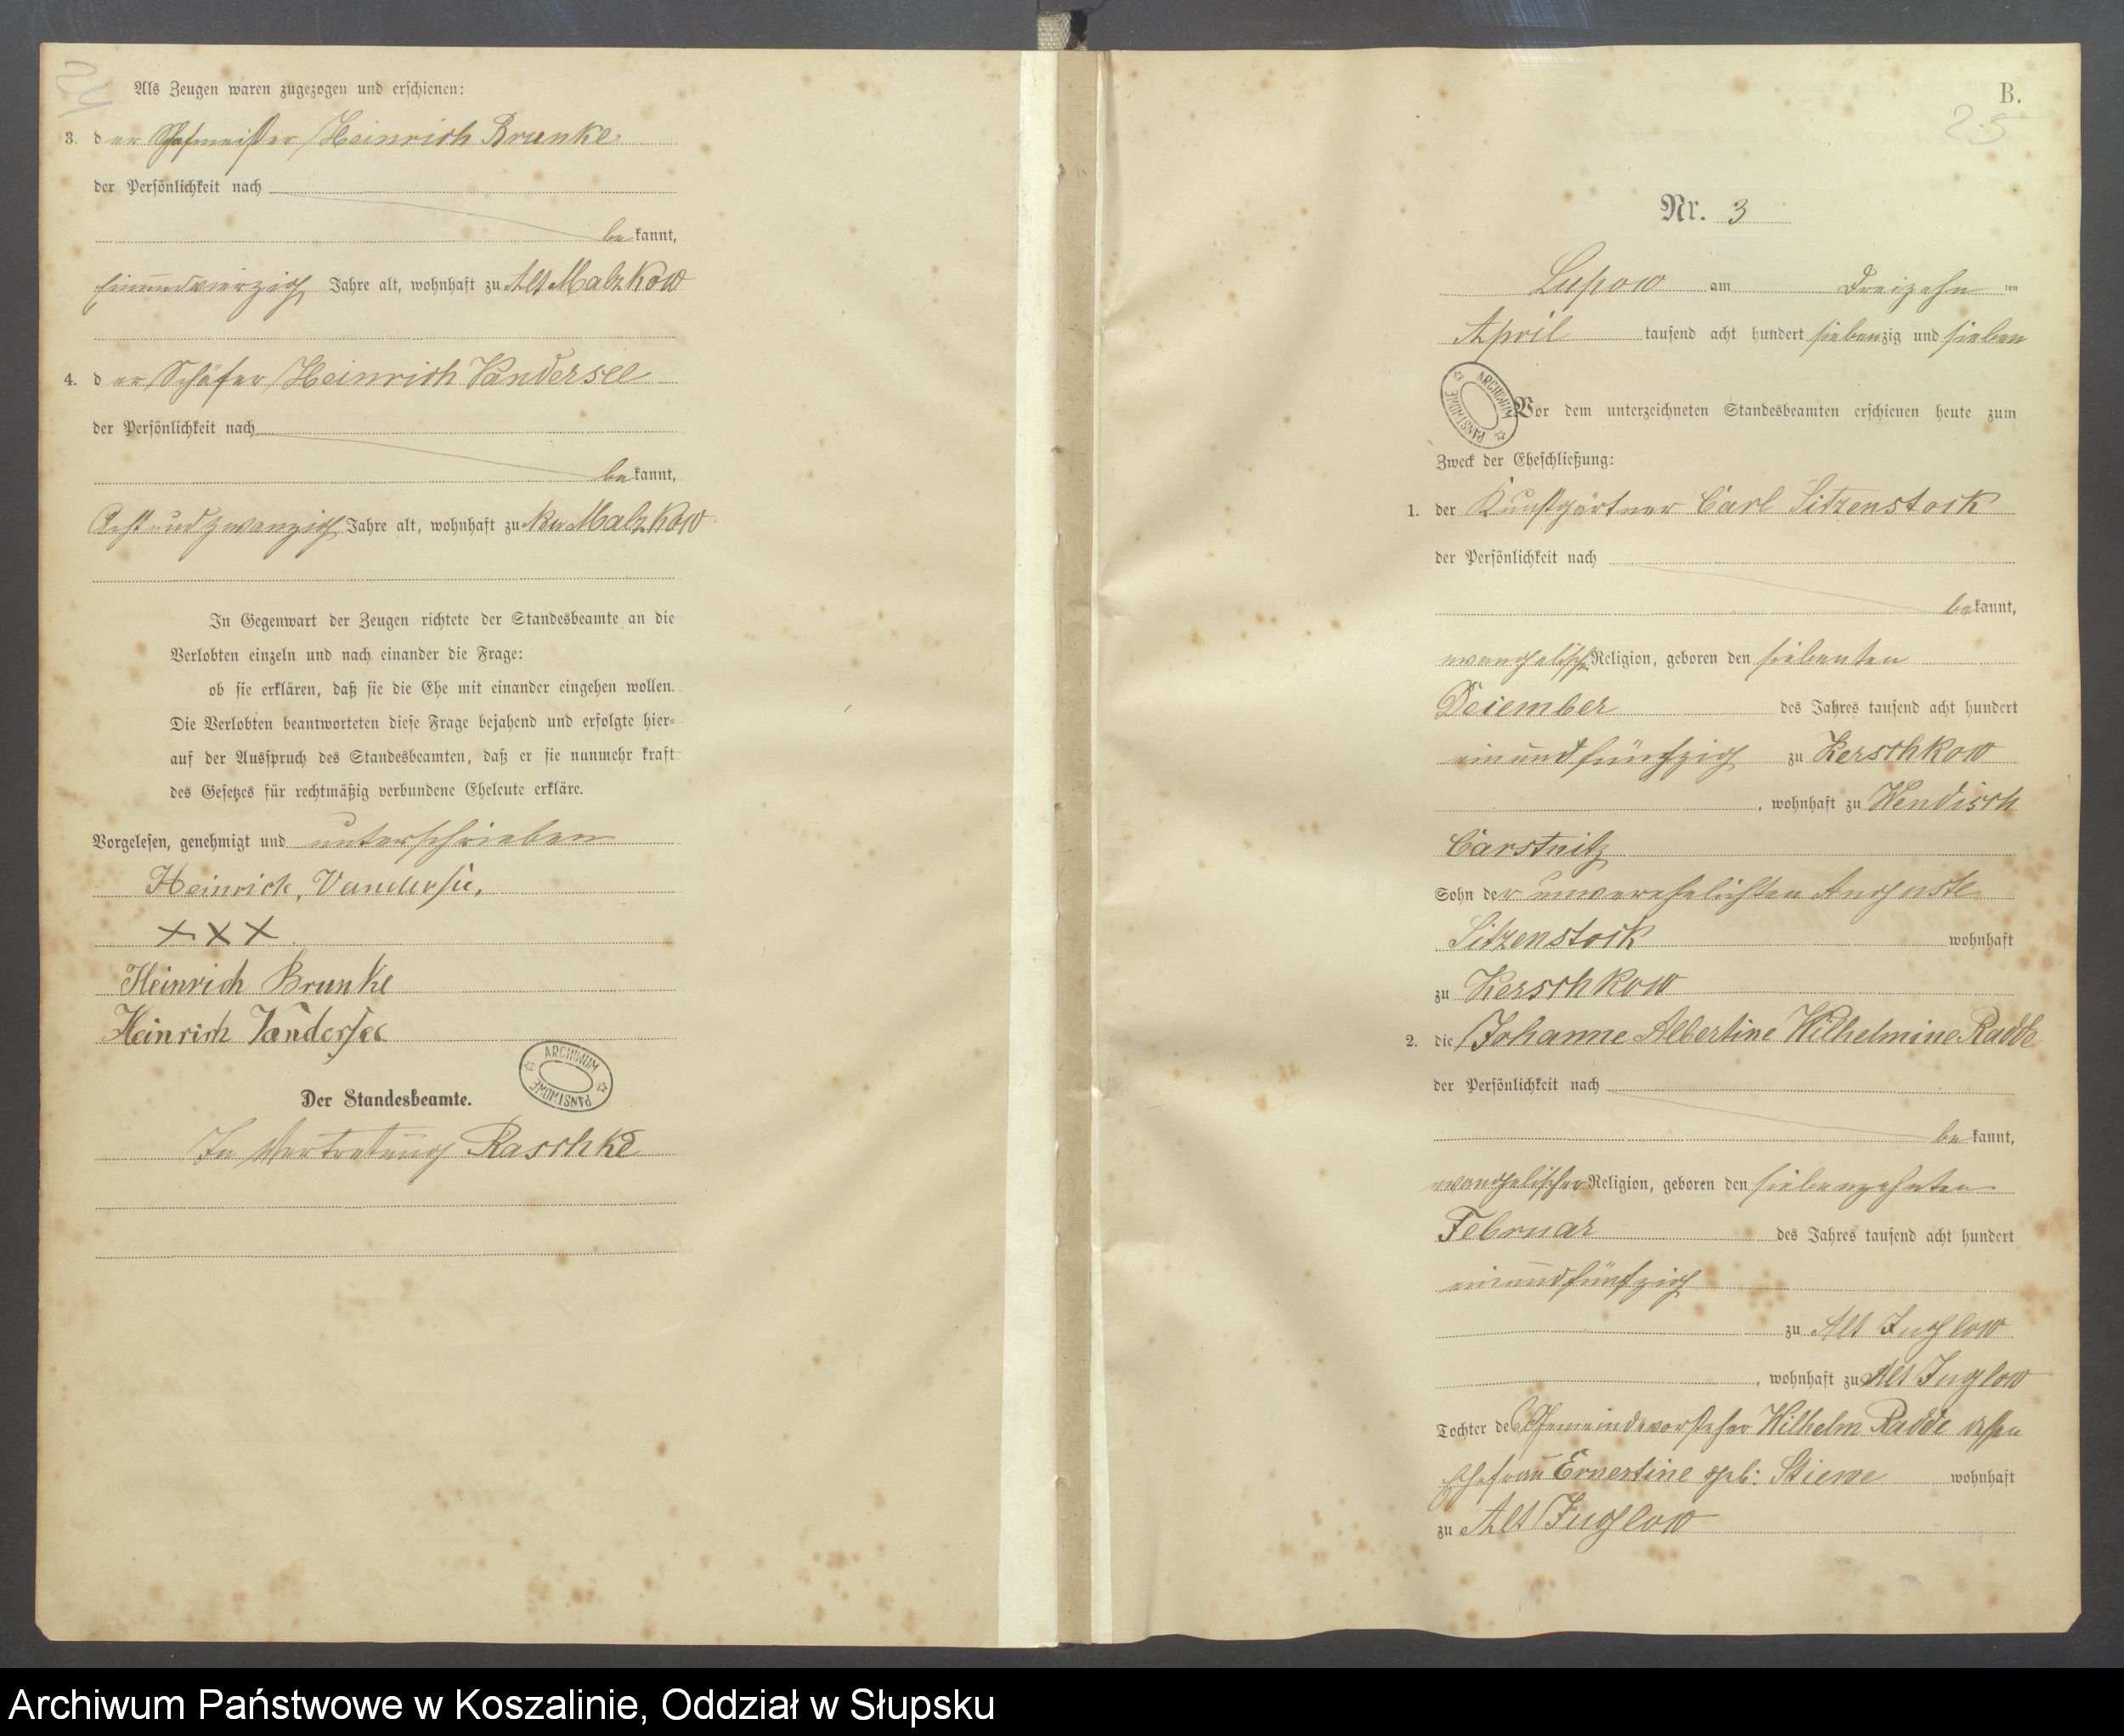 24
Als Zeugen waren zugezogen und erschienen:
3. der Hofmeister Heinrich Brunke
der Persönlichkeit nach
bekannt,
einundvierzig Jahre alt, wohnhaft zu Alt Malzkow
4. der Schäfer Heinrich Vandersee
der Persönlichkeit nach
bekannt,
Acht und zwanzig Jahre alt, wohnhaft zu Neu Malzkow
In Gegenwart der Zeugen richtete der Standesbeamte an die
Verlobten einzeln und nach einander die Frage:
ob sie erklären, daß sie die Ehe mit einander eingehen wollen.
Die Verlobten beantworteten diese Frage bejahend und erfolgte hier=
auf der Ausspruch des Standesbeamten, daß er sie nunmehr kraft
des Gesetzes für rechtmäßig verbundene Eheleute erkläre.
Vorgelesen, genehmigt und unterschrieben
Heinrich, Vandersee,
XXX.
Heinrich Brunke
Heinrich Vandersee
ARCHIWUM PAŃSTWOWE
Der Standesbeamte.
In Vertretung Raschke
B.
25
Nr. 3
Lupow am Dreizehn ten
April tausend acht hundert siebenzig und sieben
ARCHIWUM PAŃSTWOWE
Vor dem unterzeichneten Standesbeamten erschienen heute zum
Zweck der Eheschließung:
1. der Kunstgärtner Carl Sitzenstock
der Persönlichkeit nach
bekannt,
evangelisch Religion, geboren den siebenten
Dezember des Jahres tausend acht hundert
einundfünfzig zu Kerschkow
, wohnhaft zu Wendisch
Carstnitz
Sohn der unverehelichten Auguste
Sitzenstock wohnhaft
zu Kerschkow
2. die Johanne Albertine Wilhelmine Radde
der Persönlichkeit nach
bekannt,
evangelischer Religion, geboren den siebenzehnten
Februar des Jahres tausend acht hundert
einundfünfzig
zu Alt Juglow
, wohnhaft zu Alt Juglow
Tochter des Gemeindevorsteher Wilhelm Radde dessen
Ehefrau Ernestine geb: Stiewe wohnhaft
zu Alt Juglow
Archiwum Państwowe w Koszalinie, Oddział w Słupsku